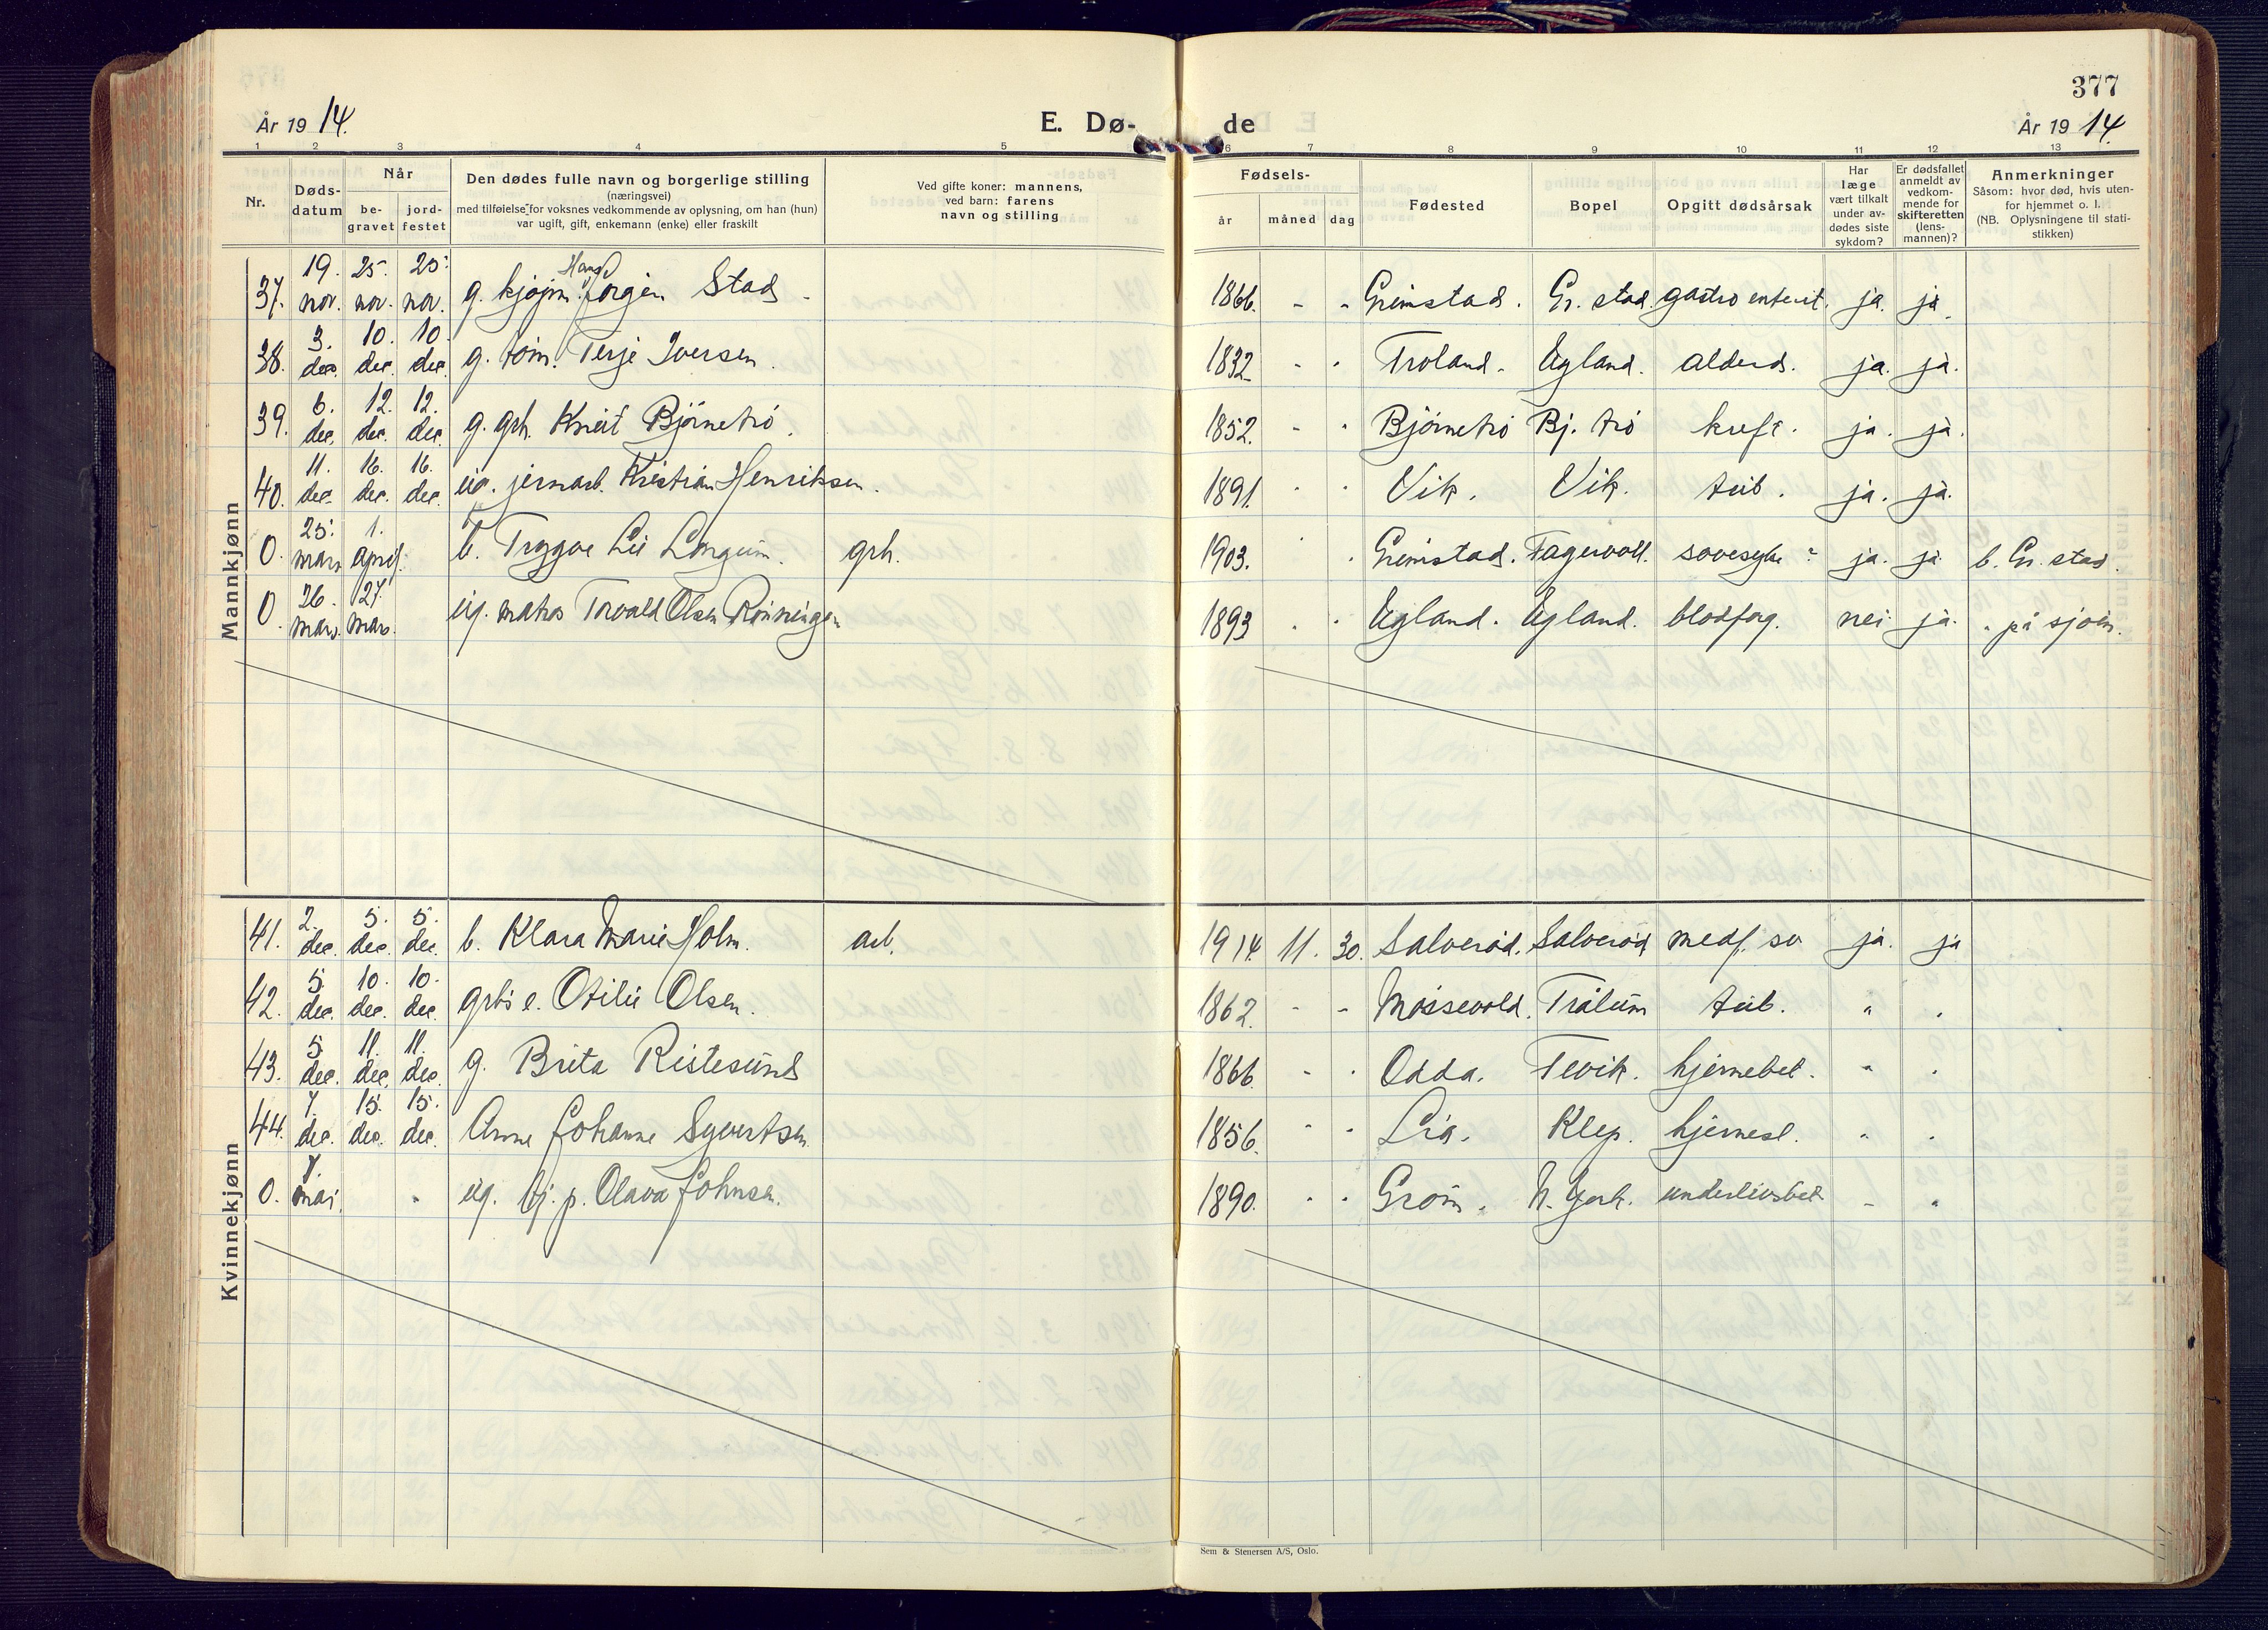 377
År 19 14.
E. Dø-
de
År 19 14.
1 2 3 4 5 6 7 8 9 10 11 12 13
Nr.
Døds-
datum
Når
be-
gravet
jord-
festet
Den dødes fulle navn og borgerlige stilling
(næringsvei)
med tilføielse for voksnes vedkommende av oplysning, om han (hun)
var ugift, gift, enkemann (enke) eller fraskilt
Ved gifte koner: mannens,
ved barn: farens
navn og stilling
Fødsels-
år måned dag
Fødested
Bopel
Opgitt dødsårsak
Har
læge
vært tilkalt
under av-
dødes siste
sykdom?
Er dødsfallet
anmeldt av
vedkom-
mende for
skifteretten
(lens-
mannen)?
Anmerkninger
Såsom: hvor død, hvis uten-
for hjemmet o. l.
(NB. Oplysningene til stati-
stikken)
Mannkjønn
37. 19. nov. 25. nov. 25. nov. g. kjøpm. Hans Jørgen Stad 1866. - - Grimstad. Gr. stad gastro enterit. ja. ja.
38. 3. dec. 10. dec. 10. dec. g. tøm. Terje Iversen. 1832 - - Troland. Egland. alderd. ja. ja.
39. 6. dec. 12. dec. 12. dec. g. grh. Knut Bjørnetrø. 1852. - - Bjørnetrø Bj. trø kreft. ja. ja.
40. 11. dec. 16. dec. 16. dec. ug. jernarb. Kristian Henriksen. 1891. - - Vik. Vik. tub. ja. ja.
0. 25. mars 1. april. b. Tryggve Lie Longum. grh. 1903. - - Grimstad. Fagervoll. sovesyke? ja. ja b. Gr. stad.
0. 26. mars. 27. mars. ug. matros Torvald Olsen Rønningen 1893 - - Egland. Egland. blodforg. nei ja. - på sjøen.
Kvinnekjønn
41. 2. dec. 5. dec. 5. dec. b. Klara Marie Holm. arb. 1914 11. 30. Salverød. Salverød medf. sv ja. ja
42. 5. dec. 10. dec. 10. dec. grbs e. Otilie Olsen. 1862. - - Moissevold. Trålum tub. " "
43. 5. dec. 11. dec. 11. dec. g. Brita Ristesund 1866. - - Odda. Fevik. hjernebet. " "
44. 7. dec. 15. dec. 15. dec. Anne Johanne Syvertsen 1856. - - Lia. Klep. hjernesl. " "
0. 7. mai. ug. tj. p. Olava Johnsen. 1890. - - Grøm. N. York. underlivsbet - "
Sem & Stenersen A/S, Oslo.